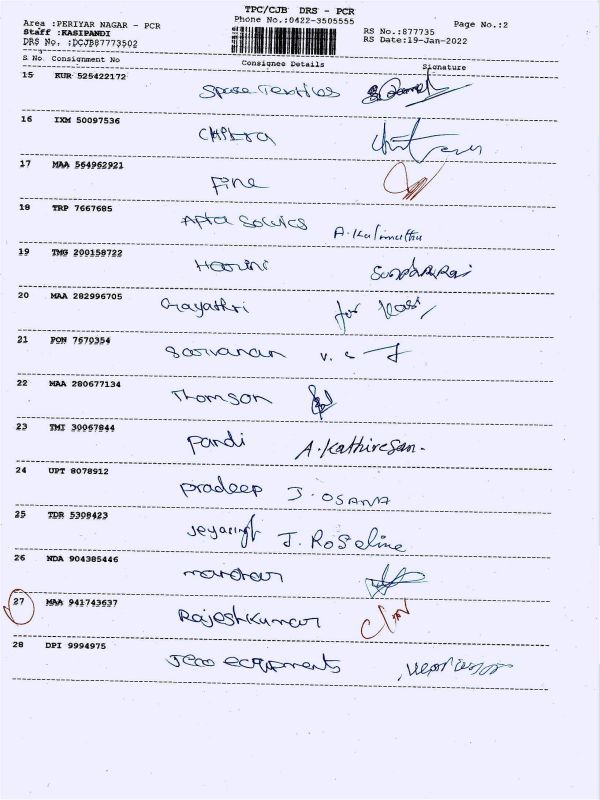 TPC/CJB DRS - PCR
Area :PERIYAR NAGAR - PCR
Phone No.:0422-3505555
Page No.:2
Staff :KASIPANDI
RS No.:877735
DRS No. :DCJB87773502
RS Date:19-Jan-2022
S No. Consignment No Consignee Details Signature
15 KUR 525422172
Space Textiles
16 IXM 50097536
Chitra
17 MAA 564962921
Fine
18 TRP 7667685
A. Kalimuthu
19 TMG 200158722
Harini
20 MAA 282996705
Gayathri for Kasi
21 PON 7670354
Sarvanan v. s
22 MAA 280677134
Thomson
23 TMI 30067844
Pandi A. Kathiresan.
24 UPT 8078912
pradeep J. OSANA
25 TDR 5308423
J. Roseline
26 NDA 904385446
manohar
27 MAA 941743637
RajeshKumar
28 DPI 9994975